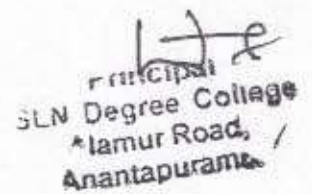 Principal
SLN Degree College
Alamur Road,
Anantapuramu